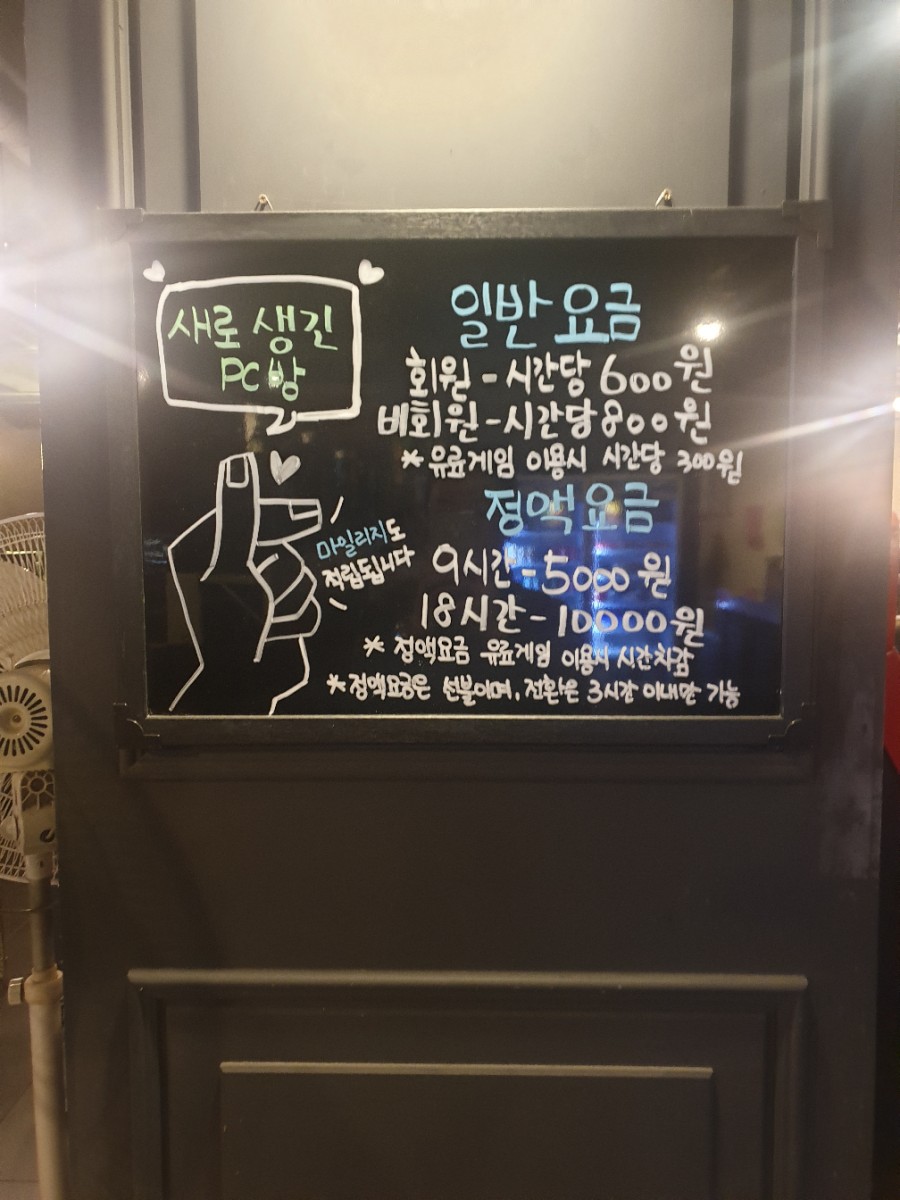 새로 생긴
PC방
마일리지도
적립됩니다
일반 요금
회원 - 시간당 600원
비회원 - 시간당 800원
* 유료게임 이용시 시간당 300원
정액요금
9시간 - 5000원
18시간 - 10000원
* 정액요금 유료게임 이용시 시간차감
* 정액요금은 선불이며, 전환은 3시간 이내만 가능